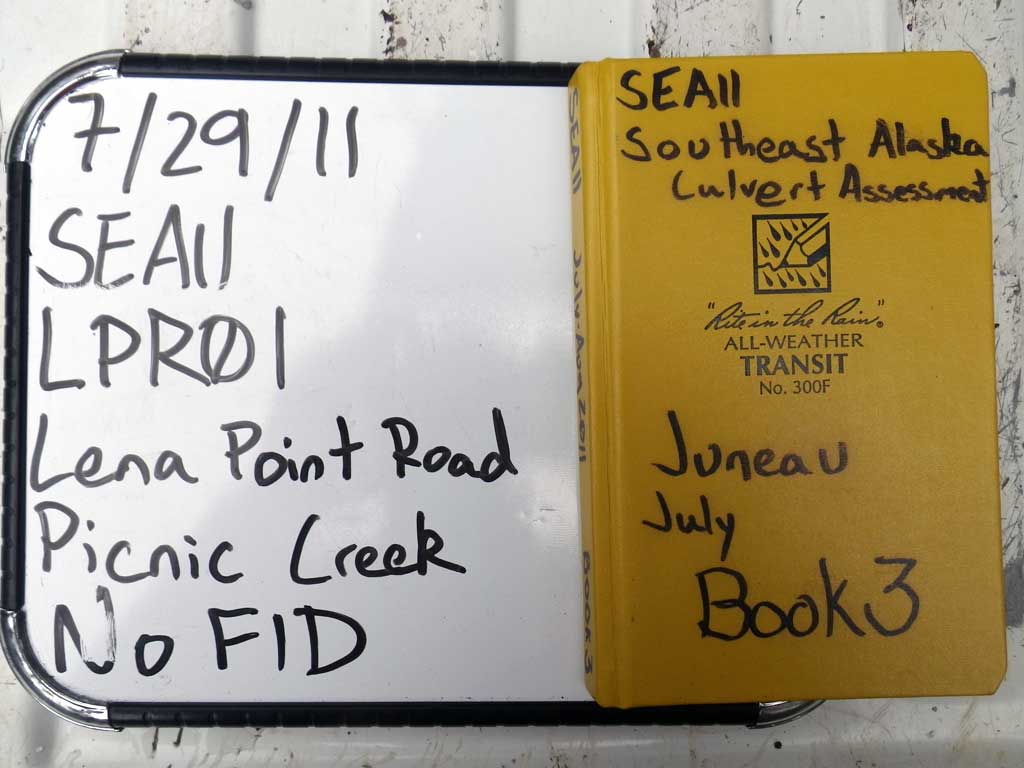 7/29/11
SEA11
LPRØ1
Lena Point Road
Picnic Creek
No FID
SEA11
July-Aug 2011
Book 3
SEA11
Southeast Alaska
Culvert Assessment
"Rite in the Rain"®
ALL-WEATHER
TRANSIT
No. 300F
Juneau
July
Book 3